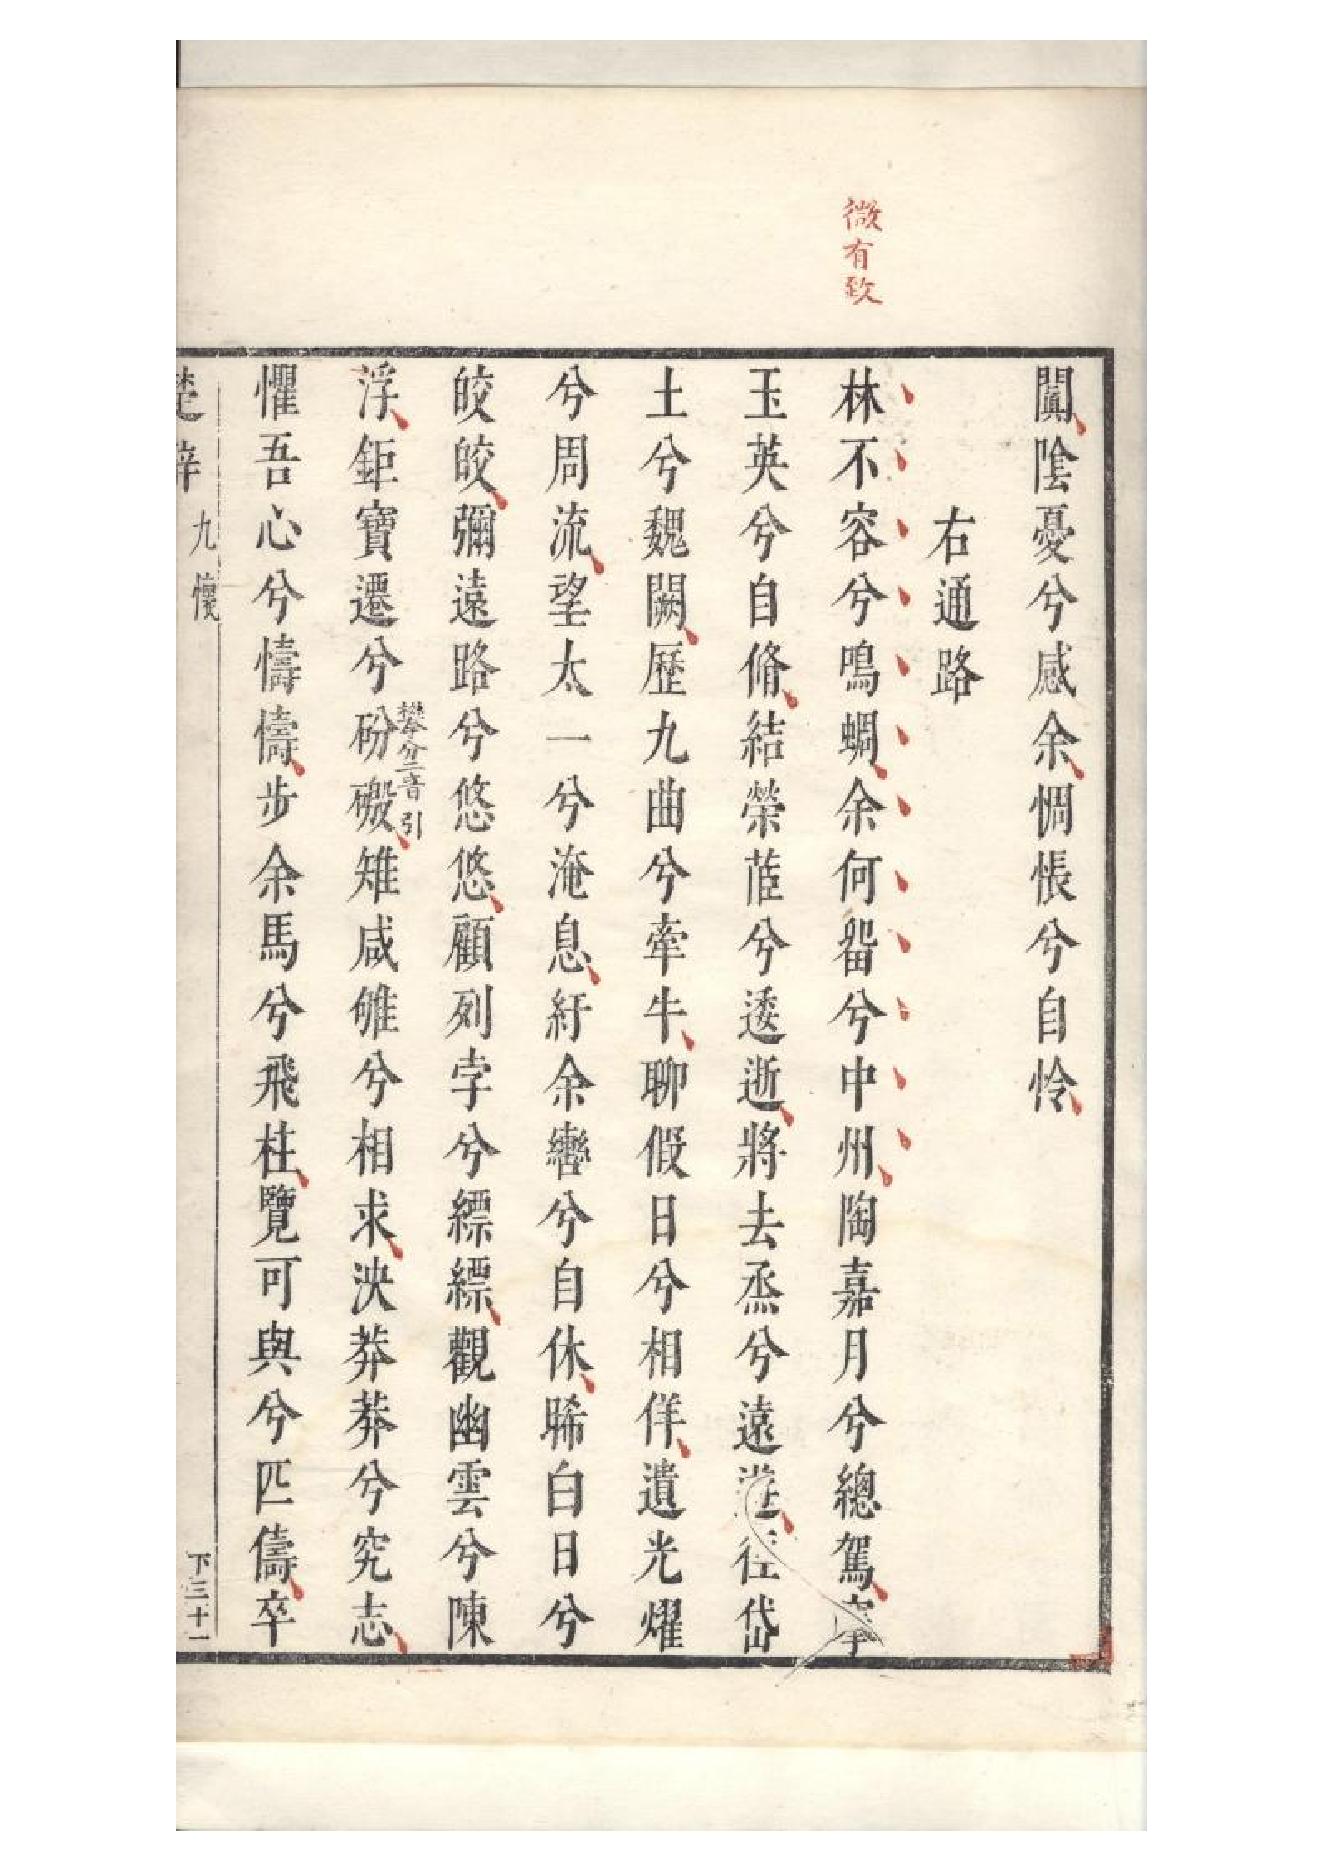 微有致
闐陰憂兮感余惆悵兮自怜
右通路
林不容兮鳴蜩余何畱兮中州陶嘉月兮總駕搴
玉英兮自脩結榮茝兮逶逝將去烝兮遠遊徑岱
土兮魏闕歷九曲兮牽牛聊假日兮相佯遺光燿
兮周流望太一兮淹息紆余轡兮自休晞白日兮
皎皎彌遠路兮悠悠顧列孛兮縹縹觀幽雲兮陳
浮鉅寶遷兮砏磤雉咸雊兮相求泱莽莽兮究志
攀分二音引
懼吾心兮懤懤步余馬兮飛柱覽可與兮匹儔卒
楚辭 九懷 下三十一